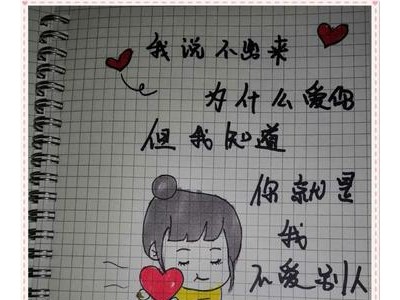 我说不出来
为什么爱你
但我知道
你就是
我
不爱别人